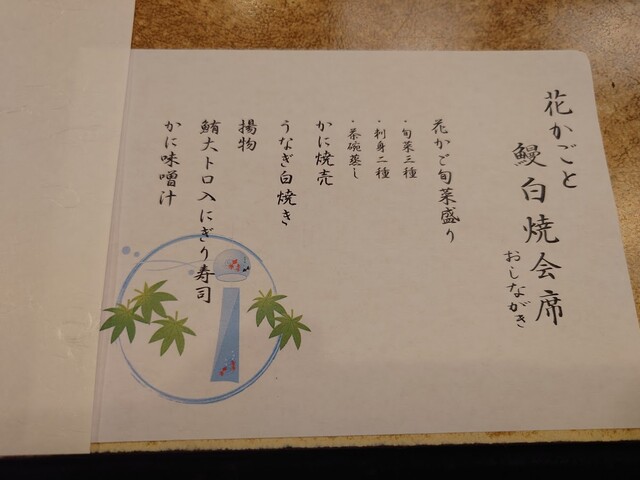 花かごと
鰻白焼会席
おしながき
花かご旬菜盛り
・旬菜三種
・刺身二種
・茶碗蒸し
かに焼売
うなぎ白焼き
揚物
鮪大トロ入にぎり寿司
かに味噌汁